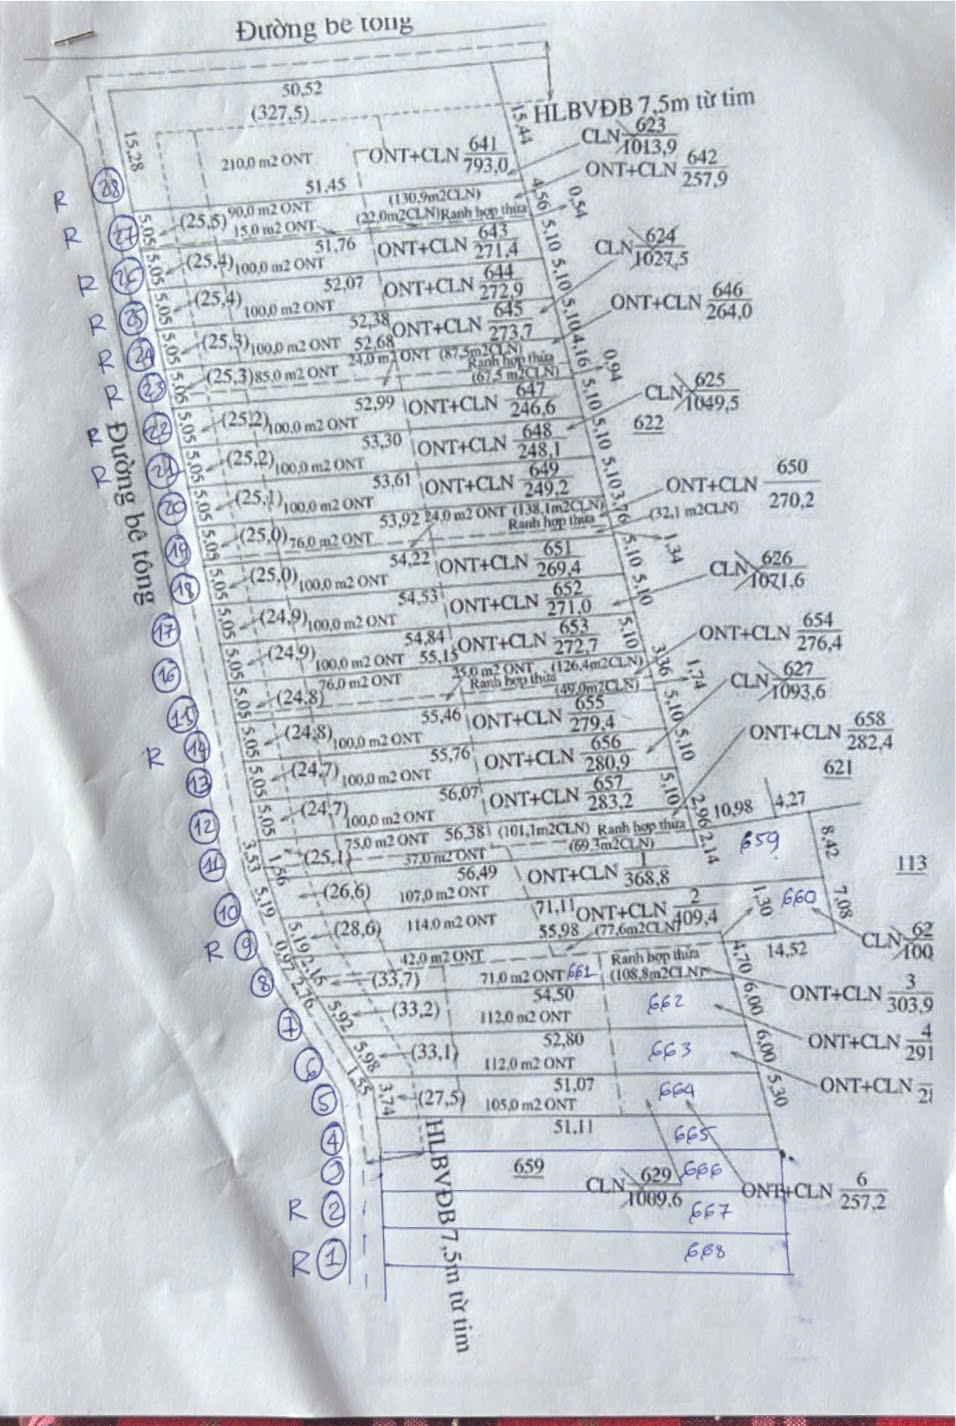 Đường bê tông
50,52
(327,5)
HLBVĐB 7,5m từ tim
15,44
15,28
CLN 623/1013,9
210,0 m2 ONT
ONT+CLN 641/793,0
ONT+CLN 642/257,9
51,45
R 28
4,56
0,54
(25,5) 90,0 m2 ONT (130,9m2CLN)
15,0 m2 ONT (22,0m2CLN) Ranh hợp thửa
R 27
5,05
5,10
51,76
ONT+CLN 643/271,4
CLN 624/1027,5
(25,4) 100,0 m2 ONT
R 26
5,05
5,10
52,07
ONT+CLN 644/272,9
ONT+CLN 646/264,0
(25,4) 100,0 m2 ONT
R 25
5,05
5,10
52,38
ONT+CLN 645/273,7
(25,3) 100,0 m2 ONT
R 24
5,05
4,16
0,94
52,68
24,0 m2 ONT (87,5m2CLN)
Ranh hợp thửa
(25,3) 85,0 m2 ONT
(67,5 m2CLN)
R 23
5,05
5,10
52,99
ONT+CLN 647/246,6
CLN 625/1049,5
622
(25,2) 100,0 m2 ONT
R 22
5,05
5,10
53,30
ONT+CLN 648/248,1
(25,2) 100,0 m2 ONT
R 21
5,05
5,10
53,61
ONT+CLN 649/249,2
ONT+CLN 650/270,2
(25,1) 100,0 m2 ONT
20
5,05
3,76
53,92 24,0 m2 ONT (138,1m2CLN)
(32,1 m2CLN)
Ranh hợp thửa
(25,0) 76,0 m2 ONT
1,34
Đường bê tông
19
5,05
5,10
54,22
ONT+CLN 651/269,4
CLN 626/1071,6
(25,0) 100,0 m2 ONT
18
5,05
5,10
54,53
ONT+CLN 652/271,0
(24,9) 100,0 m2 ONT
17
5,05
5,10
54,84
ONT+CLN 653/272,7
ONT+CLN 654/276,4
(24,9) 100,0 m2 ONT
16
5,05
3,36
1,74
55,15
35,0 m2 ONT (126,4m2CLN)
76,0 m2 ONT
Ranh hợp thửa
(49,0m2CLN)
(24,8)
CLN 627/1093,6
15
5,05
5,10
55,46
ONT+CLN 655/279,4
(24,8) 100,0 m2 ONT
ONT+CLN 658/282,4
R 14
5,05
5,10
55,76
ONT+CLN 656/280,9
621
(24,7) 100,0 m2 ONT
13
5,05
5,10
56,07
ONT+CLN 657/283,2
(24,7) 100,0 m2 ONT
12
5,05
2,96
10,98
4,27
75,0 m2 ONT 56,38 (101,1m2CLN) Ranh hợp thửa
(69,3m2CLN)
2,14
659
8,42
(25,1)
37,0 m2 ONT
11
3,53
1,56
56,49
ONT+CLN 1/368,8
113
(26,6)
107,0 m2 ONT
10
5,19
71,11
ONT+CLN 2/409,4
1,30
660
7,08
(28,6)
114,0 m2 ONT
55,98
(77,6m2CLN)
CLN 62
100
R 9
5,19
42,0 m2 ONT
Ranh hợp thửa
4,70
14,52
0,97
2,15
(33,7)
71,0 m2 ONT
661
(108,8m2CLN)
ONT+CLN 3/303,9
8
2,76
54,50
6,00
(33,2)
112,0 m2 ONT
662
ONT+CLN 4
291
7
5,92
52,80
6,00
(33,1)
112,0 m2 ONT
663
ONT+CLN
6
5,98
51,07
5,30
1,55
(27,5)
105,0 m2 ONT
664
5
3,74
51,11
665
4
3
659
CLN 629/1009,6
666
ONT+CLN 6/257,2
R 2
667
R 1
668
HLBVĐB 7,5m từ tim